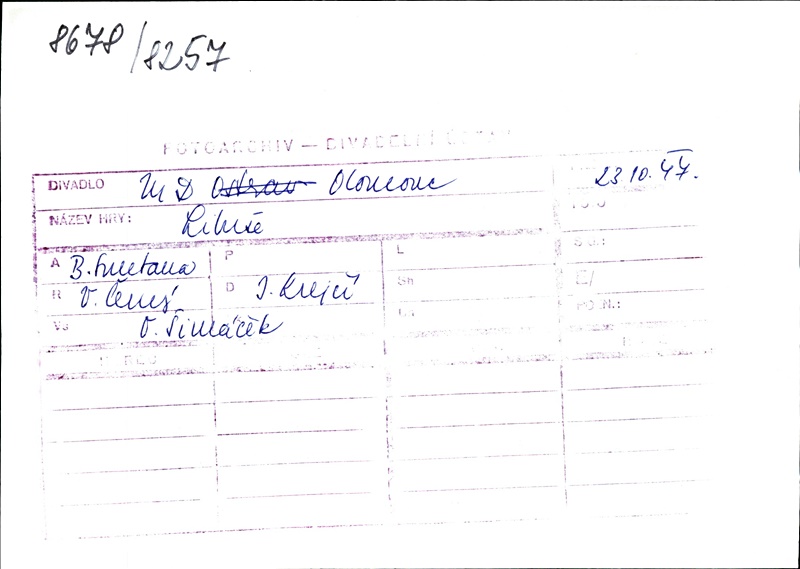 8678/8257
FOTOARCHIV — DIVADELNÍ ÚSTAV
DIVADLO M D Ostrav Olomouc 23 10. 47.
NÁZEV HRY: Libuše
A B. Smetana P L
R V. Černý D I. Krejčí Sh
Vs O. Šimáček